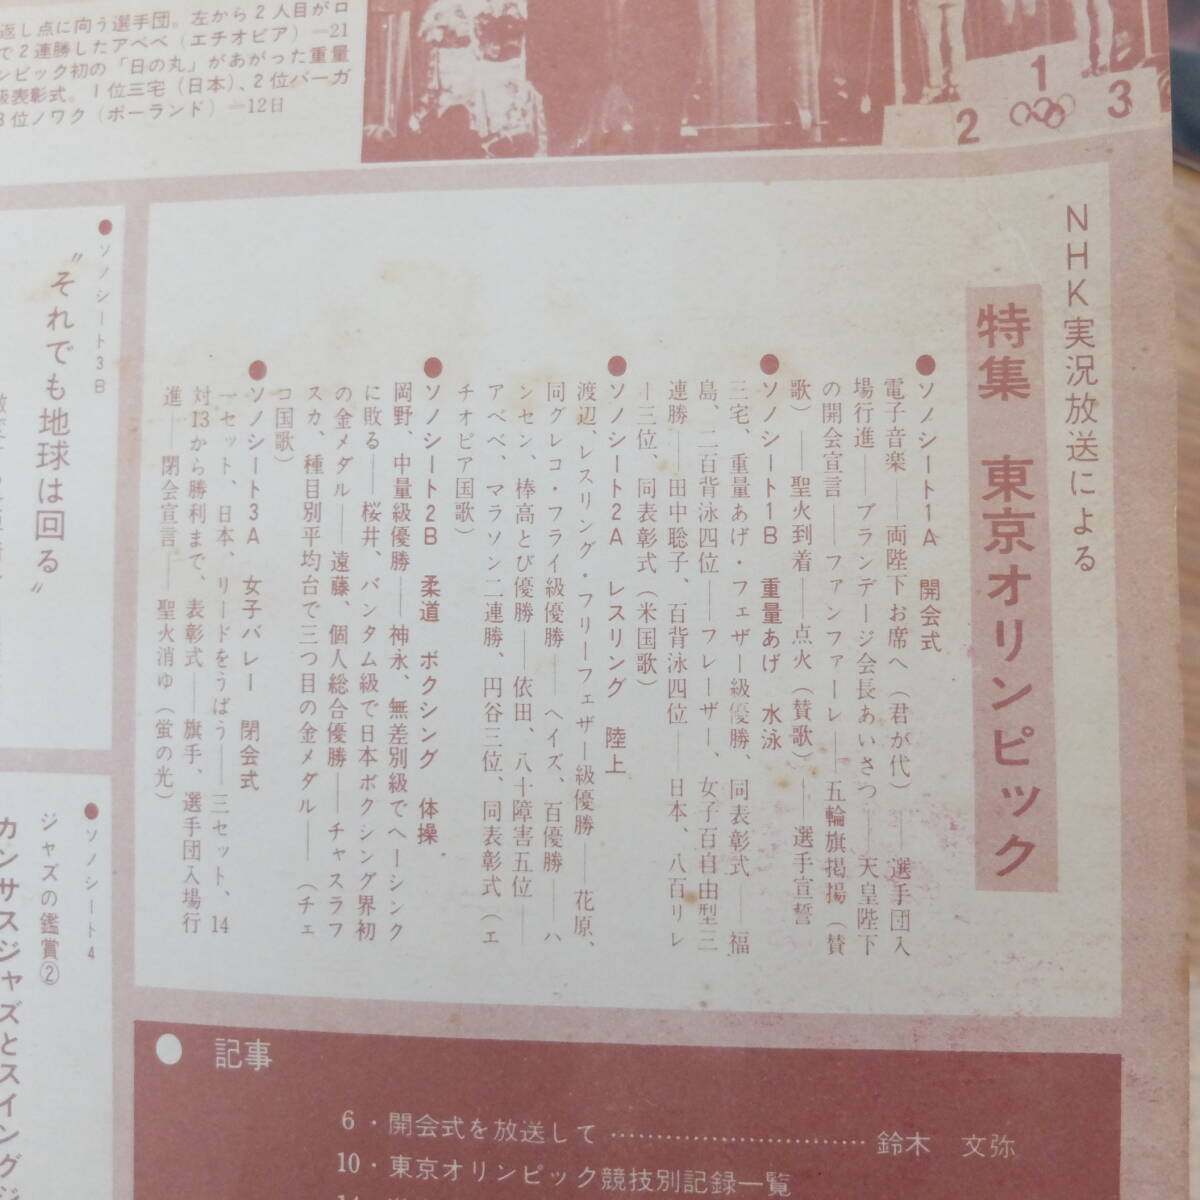 返し点に向う選手団。左から2人目がロ
で2連勝したアベベ（エチオピア）—21
ンピック初の「日の丸」があがった重量
級表彰式。1位三宅（日本）、2位バーガ
3位ノワク（ポーランド）—12日
1
2
3
NHK実況放送による
特集　東京オリンピック
●ソノシート1A　開会式
電子音楽——両陛下お席へ（君が代）——選手団入
場行進——ブランデージ会長あいさつ——天皇陛下
の開会宣言——ファンファーレ——五輪旗掲揚（賛
歌）——聖火到着——点火（賛歌）——選手宣誓
●ソノシート1B　重量あげ　水泳
三宅、重量あげ・フェザー級優勝、同表彰式——福
島、二百背泳四位——フレーザー、女子百自由型三
連勝——田中聡子、百背泳四位——日本、八百リレ
ー三位、同表彰式（米国歌）
●ソノシート2A　レスリング　陸上
渡辺、レスリング・フリーフェザー級優勝——花原、
同グレコ・フライ級優勝——ヘイズ、百優勝——ハ
ンセン、棒高とび優勝——依田、八十障害五位——
アベベ、マラソン二連勝、円谷三位、同表彰式（エ
チオピア国歌）
●ソノシート2B　柔道　ボクシング　体操
岡野、中量級優勝——神永、無差別級でヘーシンク
に敗る——桜井、バンタム級で日本ボクシング界初
の金メダル——遠藤、個人総合優勝——チャスラフ
スカ、種目別平均台で三つ目の金メダル——（チェ
コ国歌）
●ソノシート3A　女子バレー　閉会式
一セット、日本、リードをうばう——三セット、14
対13から勝利まで、表彰式——旗手、選手団入場行
進——閉会宣言——聖火消ゆ（蛍の光）
●ソノシート3B
“それでも地球は回る”
●ソノシート4
ジャズの鑑賞②
カンサスジャズとスイングジ
●　記事
6・開会式を放送して……………………鈴木　文弥
10・東京オリンピック競技別記録一覧